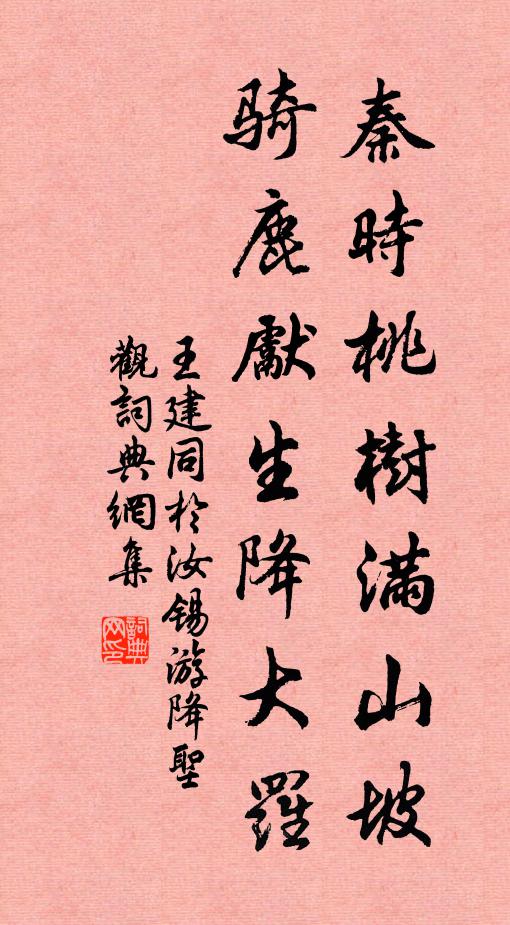 秦時桃樹滿山坡
騎鹿獻生降大羅
王建同於汝錫游降聖
觀詞典網集
詞典
网印